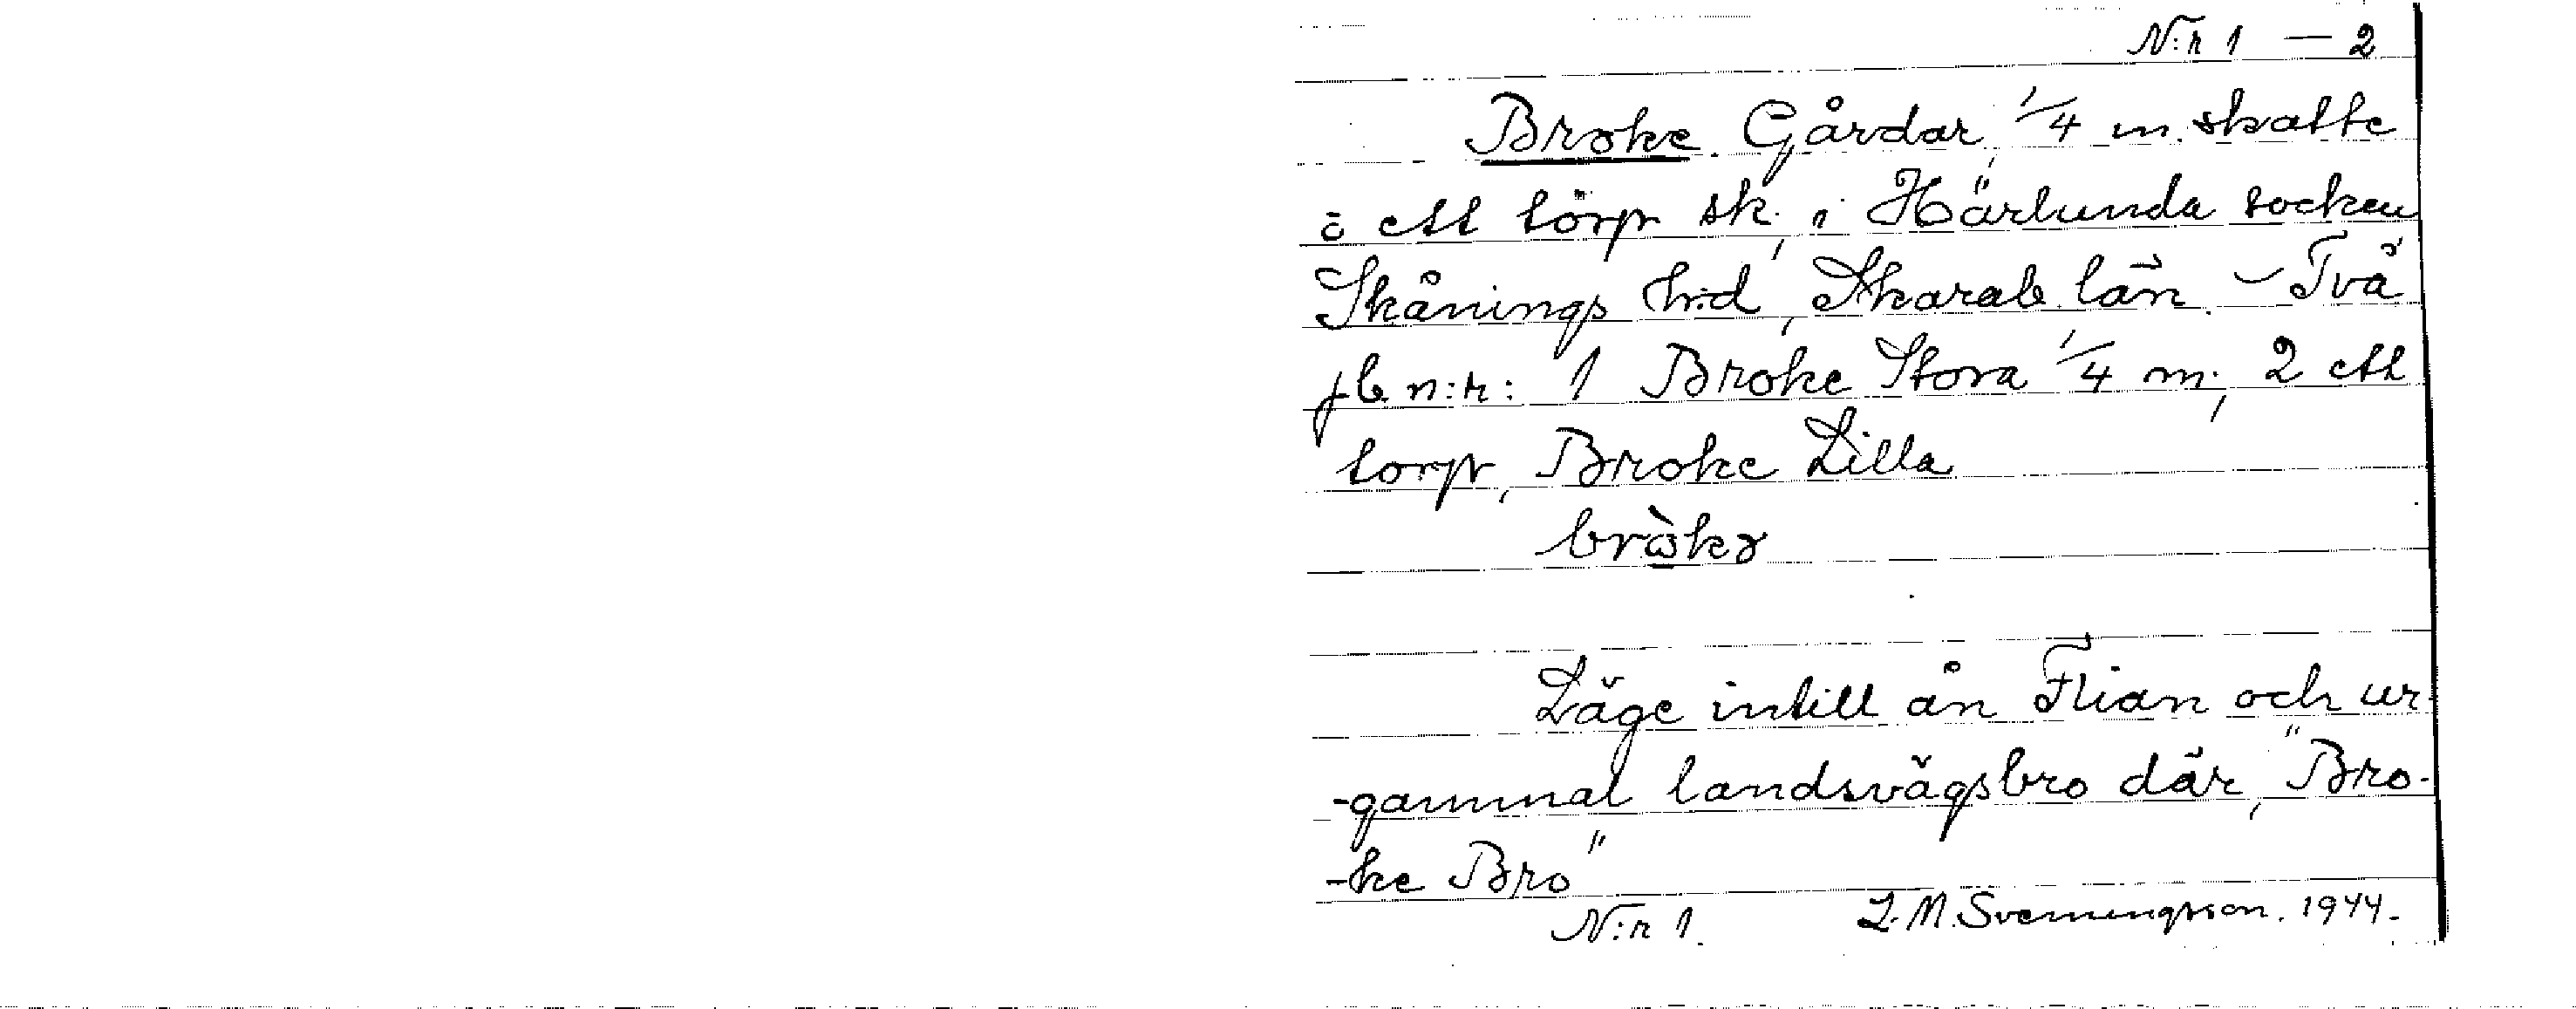 N:r 1 — 2
Broke. Gårdar, 1/4 m. skatte
o ett torp sk., i Härlunda socken
Skånings h:d, Skarab. län. – Två
jb n:r: 1 Broke Stora 1/4 m.; 2 ett
torp, Broke Lilla
Läge intill ån Flian och ur-
-gammal landsvägsbro där, "Bro-
-ke Bro"
N:r 1. L. M. Svenungsson. 1944.